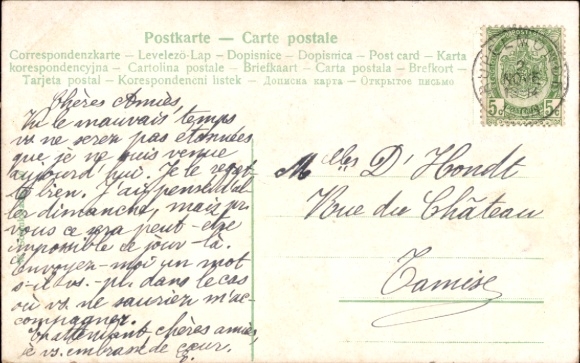 Postkarte – Carte postale
Correspondenzkarte – Levelező-Lap – Dopisnice – Dopisnica – Post card – Karta
korespondencyjna – Cartolina postale – Briefkaart – Carta postala – Brefkort –
Tarjeta postal – Korespondencni listek – Дописна карта – Открытое письмо
5c 5c
Chères Amies,
Vu le mauvais temps
vs ne serez pas étonnées
que je ne suis venue
aujourd'hui. Je le regret-
te bien. J'ai pensé d'al
ler dimanche, mais pr.
vous ce sera peut-être
impossible ce jour-là.
envoyez-moi un mot
s-il vs.-pl. dans le cas
où vs. ne sauriez m'ac-
compagner.
En attendant chères amies,
je vs. embrasse de cœur.
Melles D'Hondt
Rue du Château
Tamise